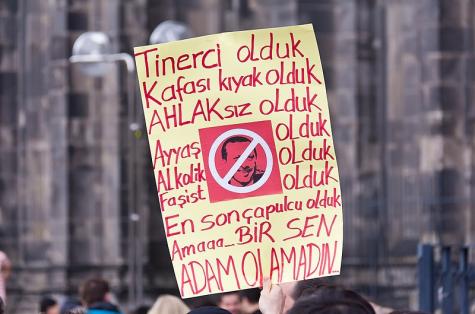 Tinerci olduk
Kafası kıyak olduk
AHLAKsız olduk
Ayyaş olduk
Alkolik olduk
Faşist olduk
En son çapulcu olduk
Amaaa_BİR SEN
ADAM OLAMADIN_